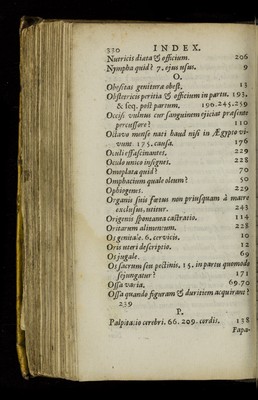 330 INDEX.
Nutricis diæta & officium. 206
Nympha quid? 7. ejus usus. 9
O.
Obesitas genituræ obest. 13
Obstetricis peritia & officium in partu. 195.
& seq. post partum. 196.245.259
Occisi vulnus cur sanguinem ejiciat præsente
percussore? 110
Octavo mense nati haud nisi in Ægypto vi-
vunt 175. causa. 176
Oculi effascinantes. 229
Oculo unico insignes. 228
Omoplata quid? 70
Omphacium quale oleum? 50
Ophiogenes. 229
Organis suis fœtus non priusquam à matre
exclusus, utitur. 243
Origenis spontanea castratio. 114
Oritarum alimentum. 228
Os genitale. 6. cervicis. 10
Oris uteri descriptio. 12
Os jugale. 69
Os sacrum seu pectinis. 15. in partu quomodo
sejungatur? 171
Ossa varia. 69.70
Ossa quando figuram & duritiem acquirant?
239
P.
Palpitatio cerebri. 66. 209. cordis. 138
Papa-